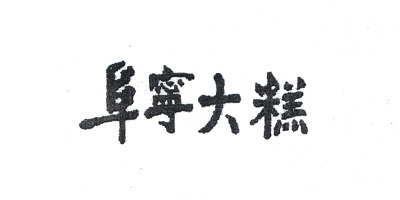 阜寧大糕